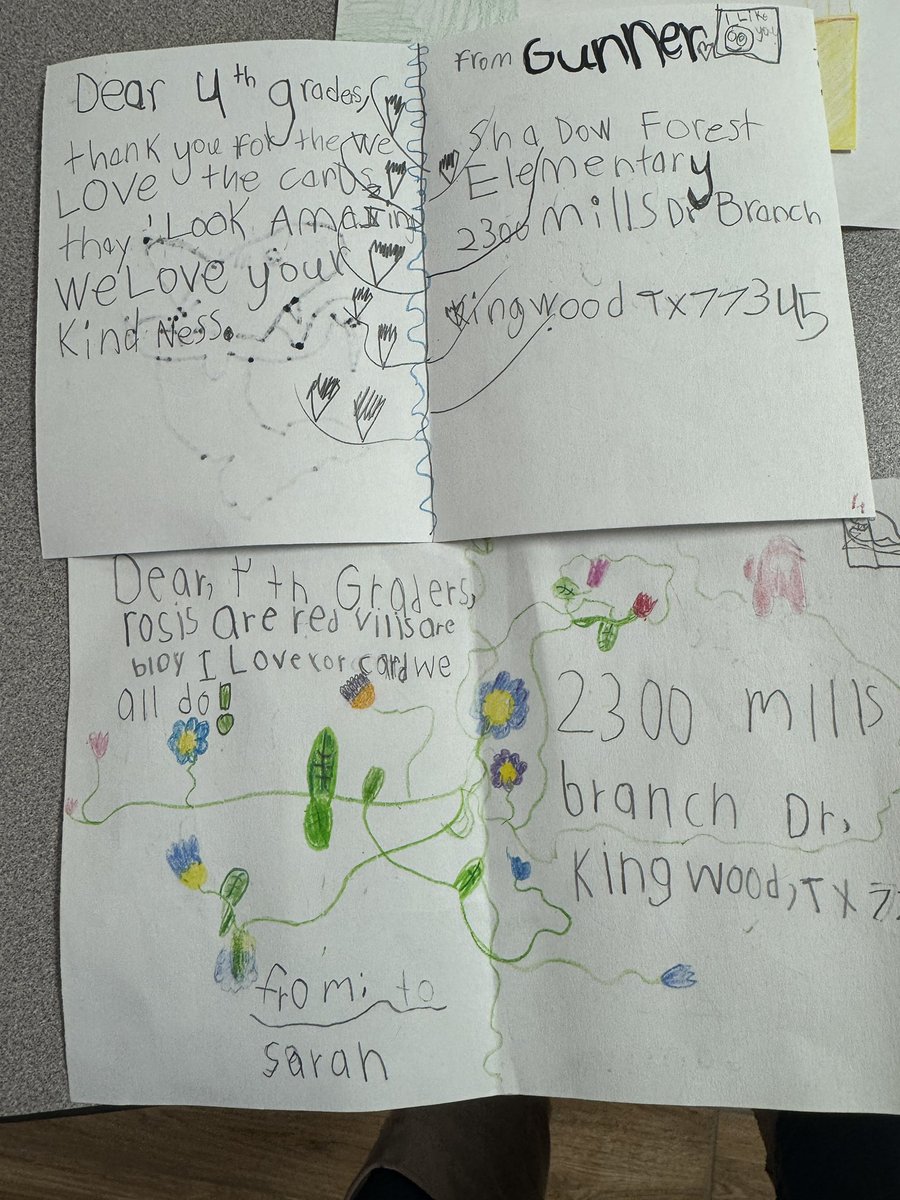 Dear 4th grades,
thank you for the we
LOVE the cards
they Look Amazing
we Love your
Kind Ness.
From Gunner
I Like
you
ShaDow Forest
Elementary
2300 mills Dr Branch
Kingwood TX 77345
Dear, 4th Graders,
rosis are red vilis are
bloy I Love yor card we
all do!
from: to
sarah
2300 mills
branch Dr,
Kingwood, TX 77